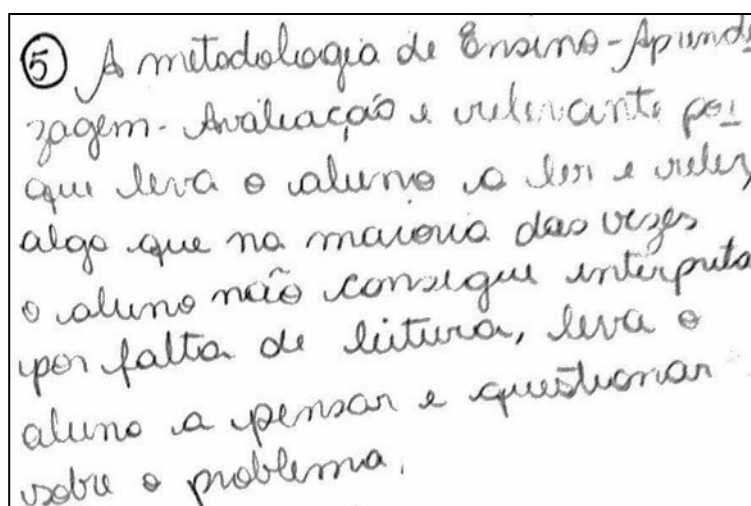 5 A metodologia de Ensino-Aprendi
zagem-Avaliação e relevante por
que leva o aluno a ler e reler,
algo que na maioria das vezes
o aluno não consegue interpreta
por falta de leitura, leva o
aluno a pensar e questionar
sobre o problema.